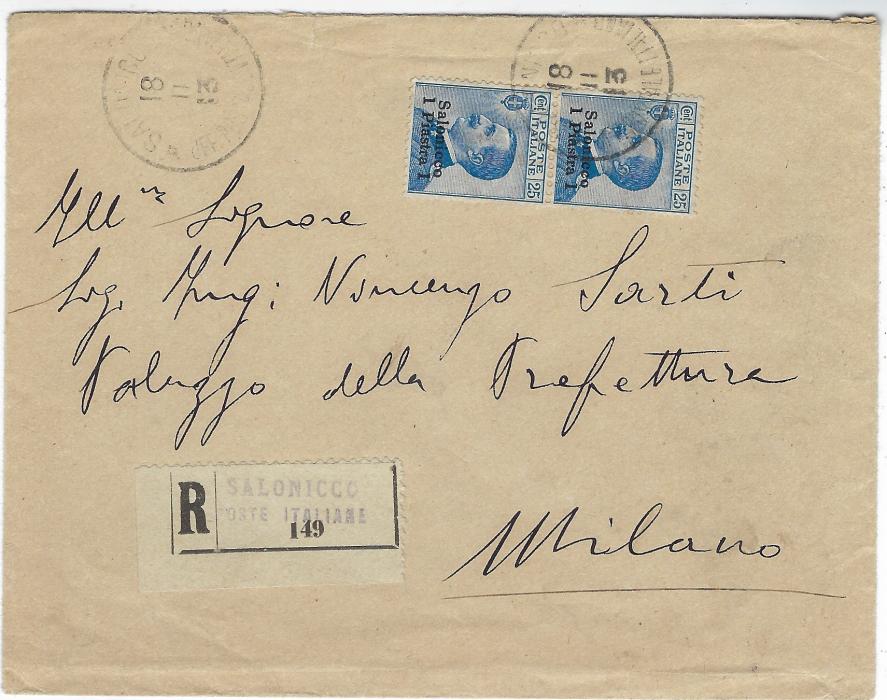 18
11
13
18
11
13
POSTE
ITALIANE
Cent 25
Salonicco
1 Piastra 1
POSTE
ITALIANE
Cent 25
Salonicco
1 Piastra 1
Ill.mo Signore
Sig. Ing: Vincenzo Sarti
Palazzo della Prefettura
Milano
R
SALONICCO
POSTE ITALIANE
149